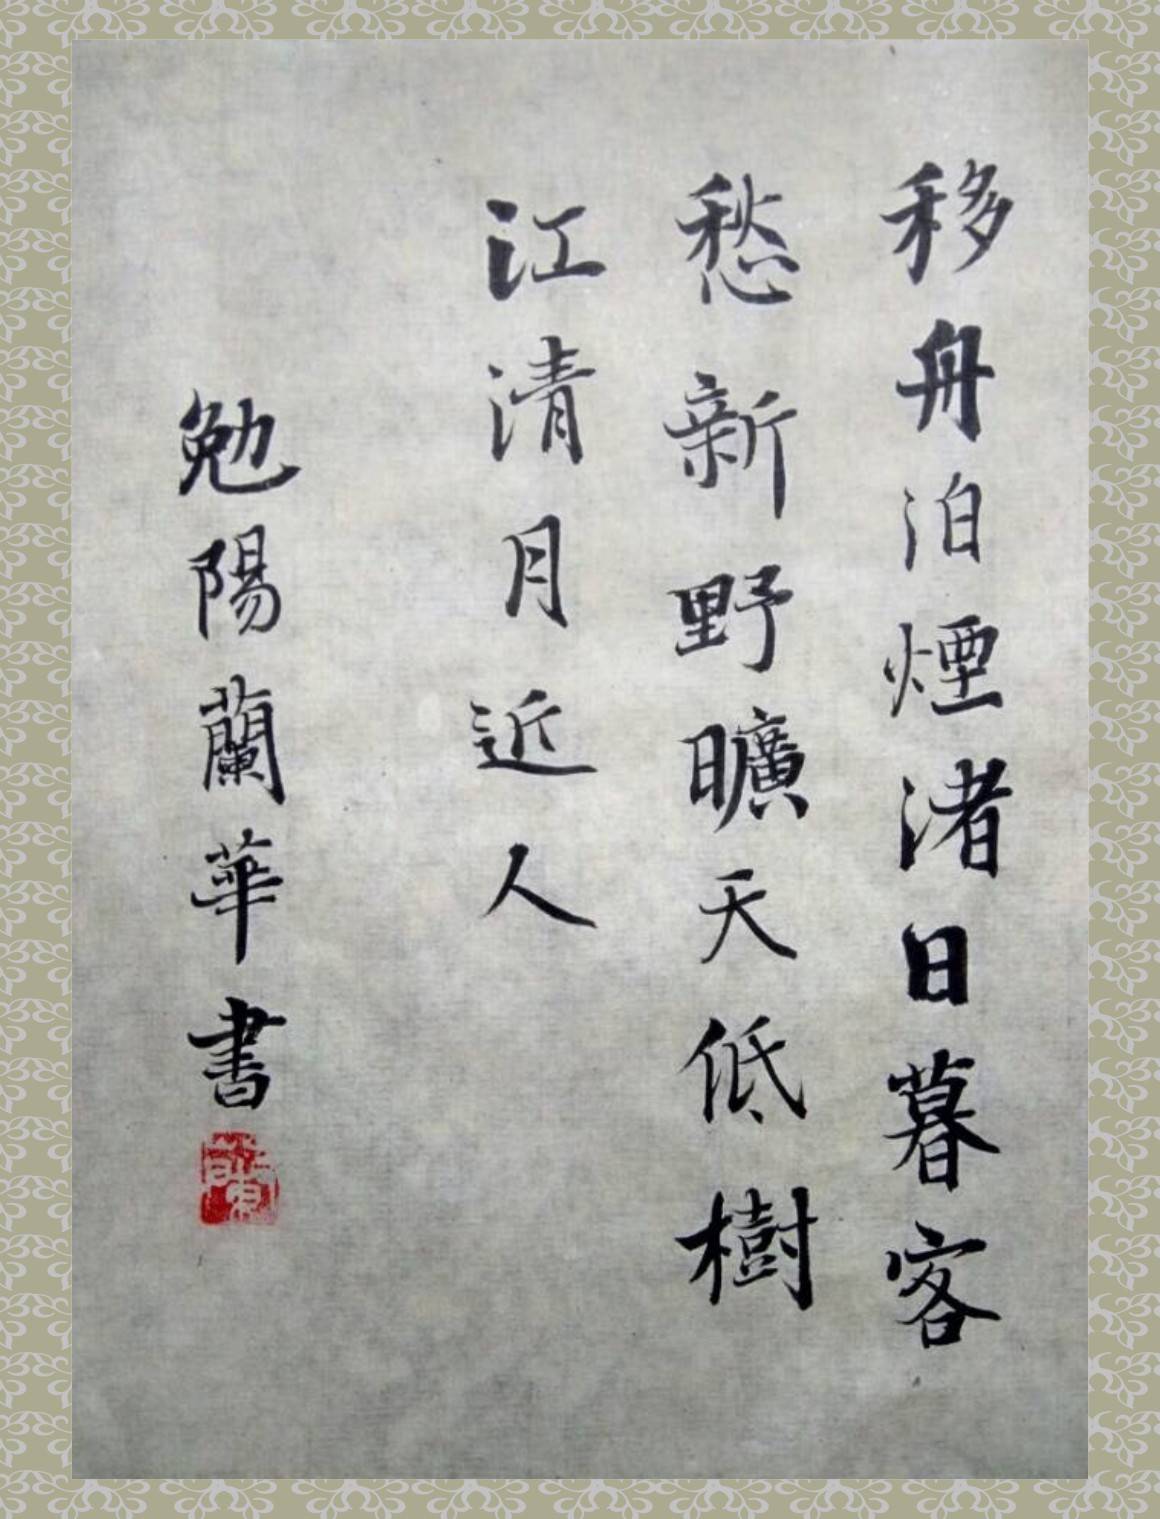 移舟泊煙渚日暮客
愁新野曠天低樹
江清月近人
勉陽蘭華書